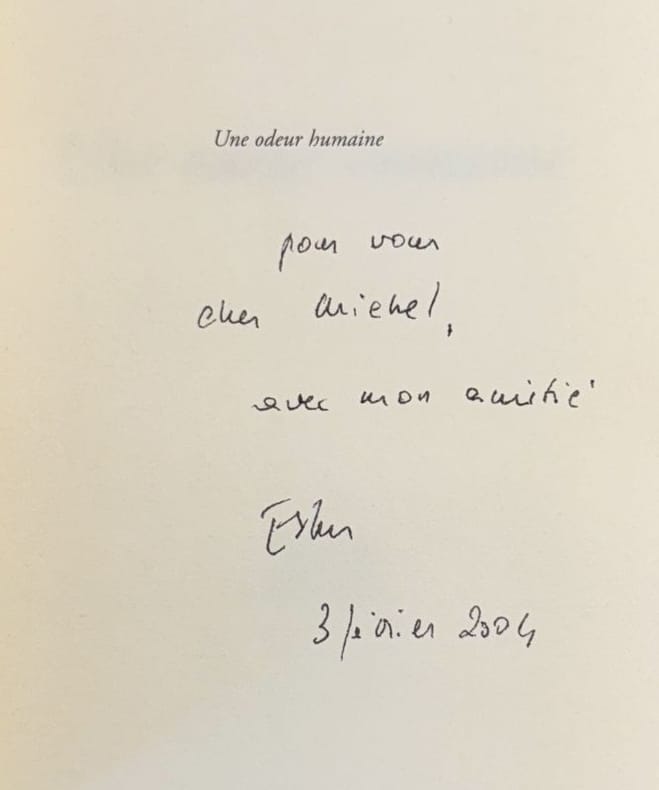 Une odeur humaine
pour vous
cher Michel,
avec mon amitié
Esther
3 février 2004